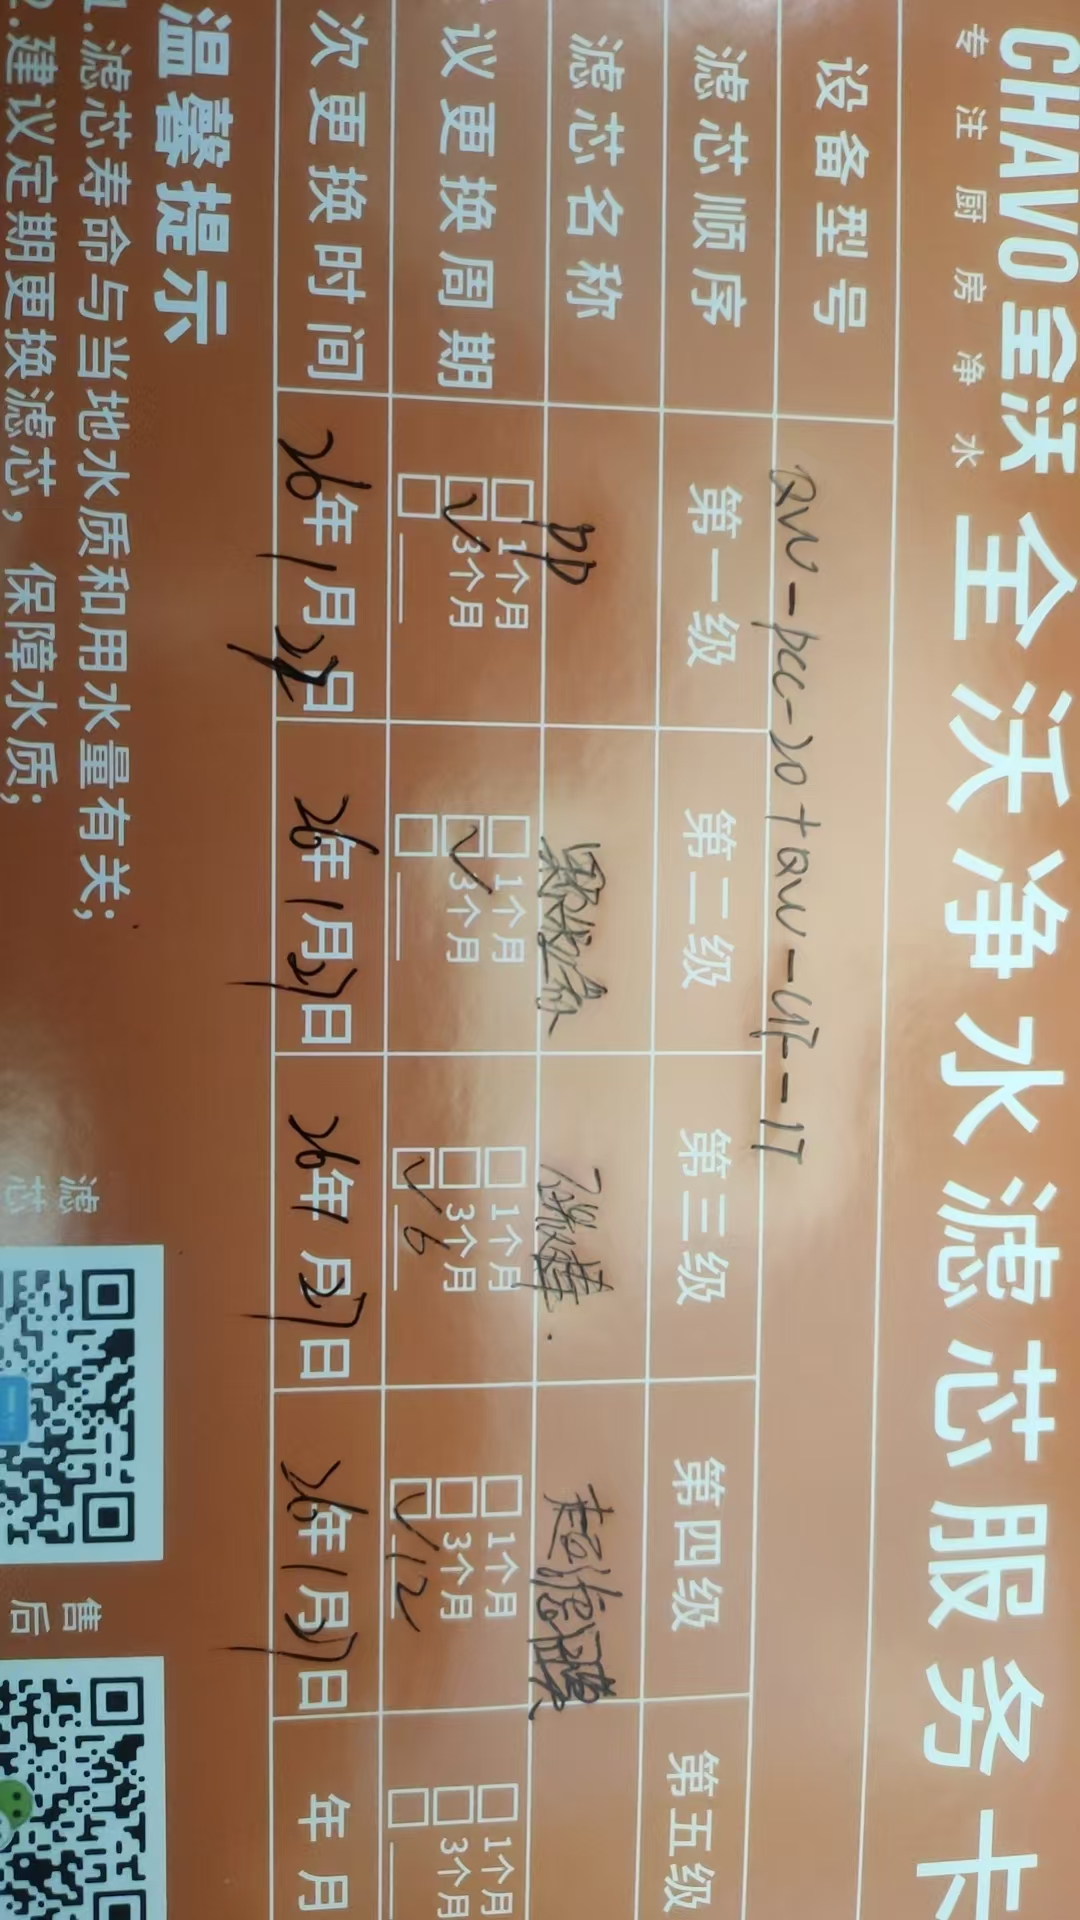 CHAVO全沃 全沃净水滤芯服务卡
专注厨房净水
设备型号 QW-pcc-20+QW-UF-17
滤芯顺序 第一级 第二级 第三级 第四级 第五级
滤芯名称 PP 颗粒 碳棒. 超滤膜
议更换周期 □1个月 □1个月 □1个月 □1个月 □1个月
☑3个月 ☑3个月 □3个月 □3个月 □3个月
□ □ ☑6 ☑12 □
次更换时间 26年1月27日 26年1月27日 26年1月27日 26年1月27日 年 月
温馨提示
1.滤芯寿命与当地水质和用水量有关;
2.建议定期更换滤芯,保障水质;
滤芯
售后